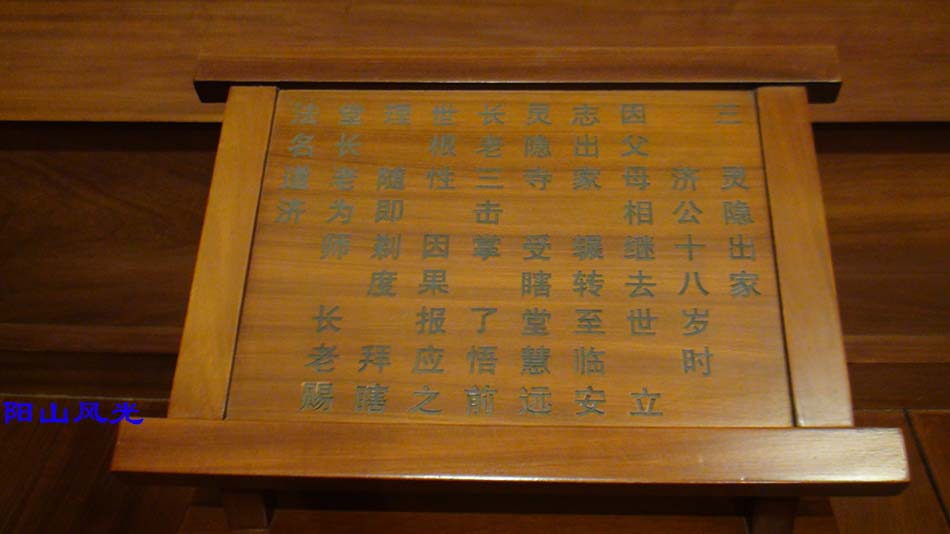 三 灵隐出家
济公十八岁时
因父母相继去世 立
志出家 辗转至临安
灵隐寺 受瞎堂慧远
长老三击掌了悟前
世根性 因果报应之
理 随即剃度 拜瞎
堂长老为师 长老赐
法名道济
阳山风光